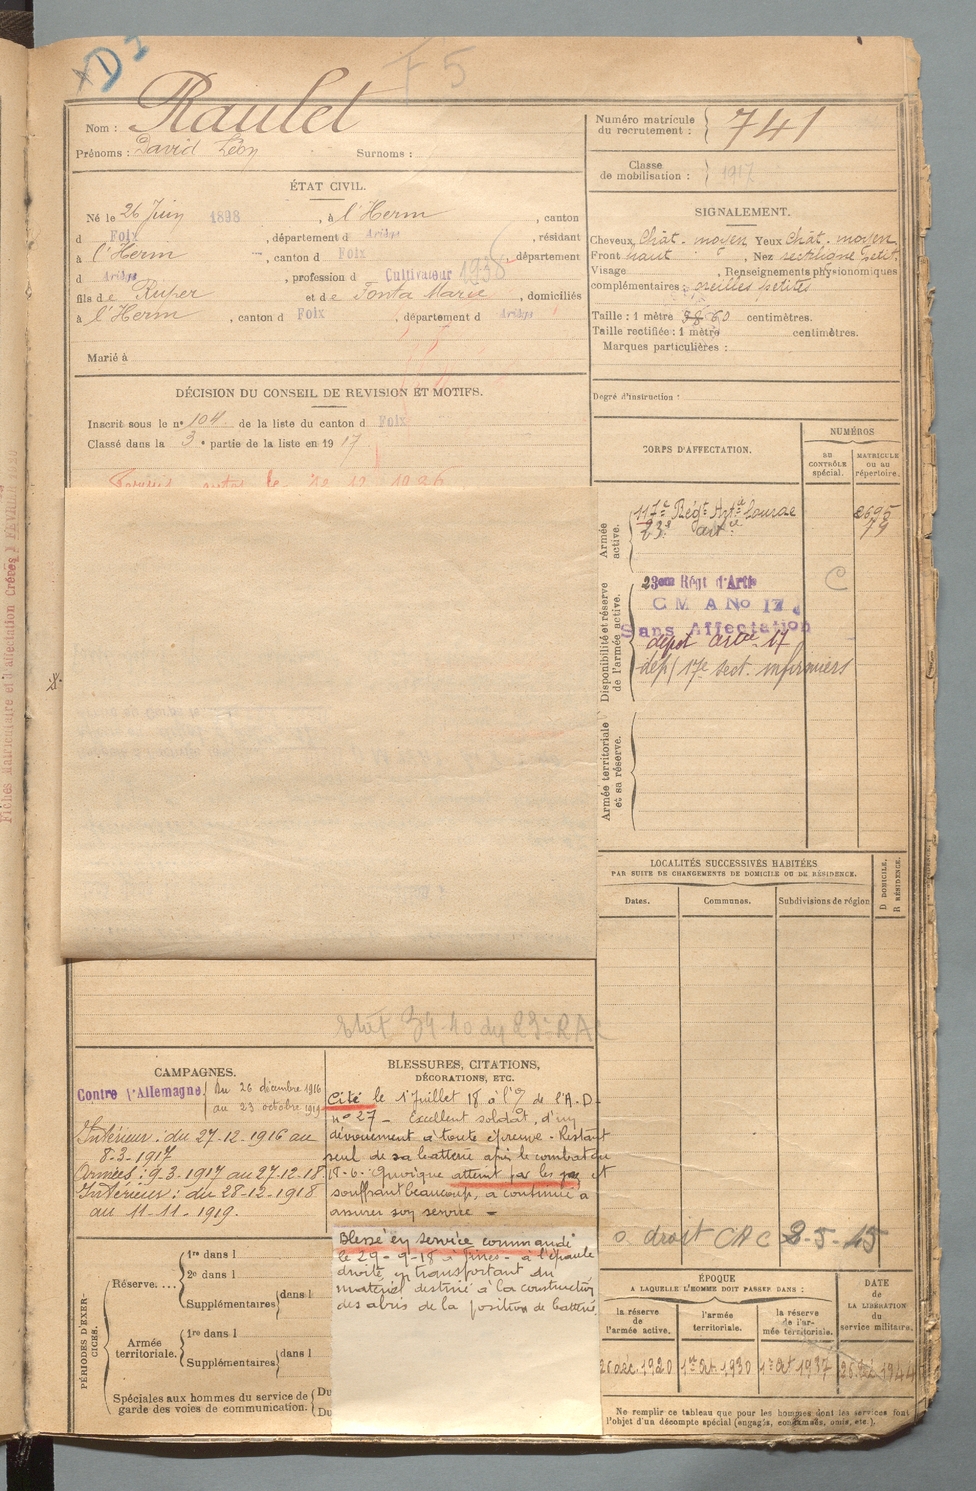 D
F 5
Nom : Raulet
Prénoms : David Léon Surnoms :
Numéro matricule du recrutement : 741
Classe de mobilisation : 1917
ÉTAT CIVIL.
Né le 26 Juin 1898, à l'Herm, canton
d Foix, département d Ariège, résidant
à l'Herm, canton d Foix, département
d Ariège, profession d Cultivateur 1938
fils de Ruper et de Fonta Marie, domiciliés
à l'Herm, canton d Foix, département d Ariège
Marié à
SIGNALEMENT.
Cheveux Chât. moyen Yeux Chât. moyen
Front haut, Nez rectiligne petit.
Visage, Renseignements physionomiques
complémentaires : oreilles petites
Taille : 1 mètre 60 centimètres.
Taille rectifiée : 1 mètre centimètres.
Marques particulières :
Degré d'instruction :
DÉCISION DU CONSEIL DE REVISION ET MOTIFS.
Inscrit sous le n° 104 de la liste du canton d Foix
Classé dans la 3e partie de la liste en 1917
CORPS D'AFFECTATION.
NUMÉROS
AU CONTRÔLE spécial.
MATRICULE ou au répertoire.
Armée active.
117e Régt Arte Lourde
23e artie
79
Disponibilité et réserve de l'armée active.
23eme Régt d'Artie
C
C M A No 17
Sans Affectation
dépôt artie 17
dép/ 17e sect. infirmiers
Armée territoriale et sa réserve.
Fiches Matriculaire et d'affectation Créées
LOCALITÉS SUCCESSIVES HABITÉES
PAR SUITE DE CHANGEMENTS DE DOMICILE OU DE RÉSIDENCE.
D DOMICILE.
R RÉSIDENCE.
Dates. Communes. Subdivisions de région
Etat 34-40 du 23e RAC
CAMPAGNES.
Contre l'Allemagne { du 26 décembre 1916
au 23 octobre 1919
Intérieur : du 27-12-1916 au
8-3-1917
Armées : 9-3-1917 au 27-12-18
Intérieur : du 28-12-1918
au 11-11-1919.
BLESSURES, CITATIONS,
DÉCORATIONS, ETC.
Cité le 1 Juillet 18 à l'O de l'A.D.
n° 27 - Excellent soldat, d'un
dévouement à toute épreuve - Restant
seul de sa batterie après le combat du
18-6. Quoique atteint par les gaz et
souffrant beaucoup, a continué à
assurer son service -
Blessé en service commandé
le 29-9-18 à Fismes - à l'épaule
droite, en transportant du
matériel destiné à la construction
des abris de la position de batterie
o. droit CAC 8-5-45
PÉRIODES D'EXERCICES.
Réserve....
1re dans l
2e dans l
Supplémentaires dans l
Armée territoriale.
1re dans l
Supplémentaires dans l
Spéciales aux hommes du service de garde des voies de communication.
Du
Du
ÉPOQUE
A LAQUELLE L'HOMME DOIT PASSER DANS :
DATE DE LA LIBÉRATION du service militaire.
la réserve de l'armée active.
l'armée territoriale.
la réserve de l'armée territoriale.
26 déc. 1920
1er Oct. 1930
1er Oct 1937
Ne remplir ce tableau que pour les hommes dont les services font
l'objet d'un décompte spécial (engagés, condamnés, omis, etc.).